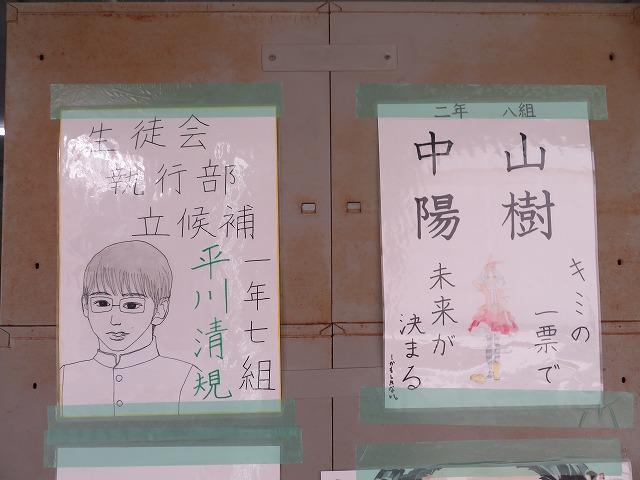 生徒会
執行部
立候補
一年七組
平川清規
二年 八組
中山
陽樹
キミの
一票で
未来が
決まる
〜かもしれない。